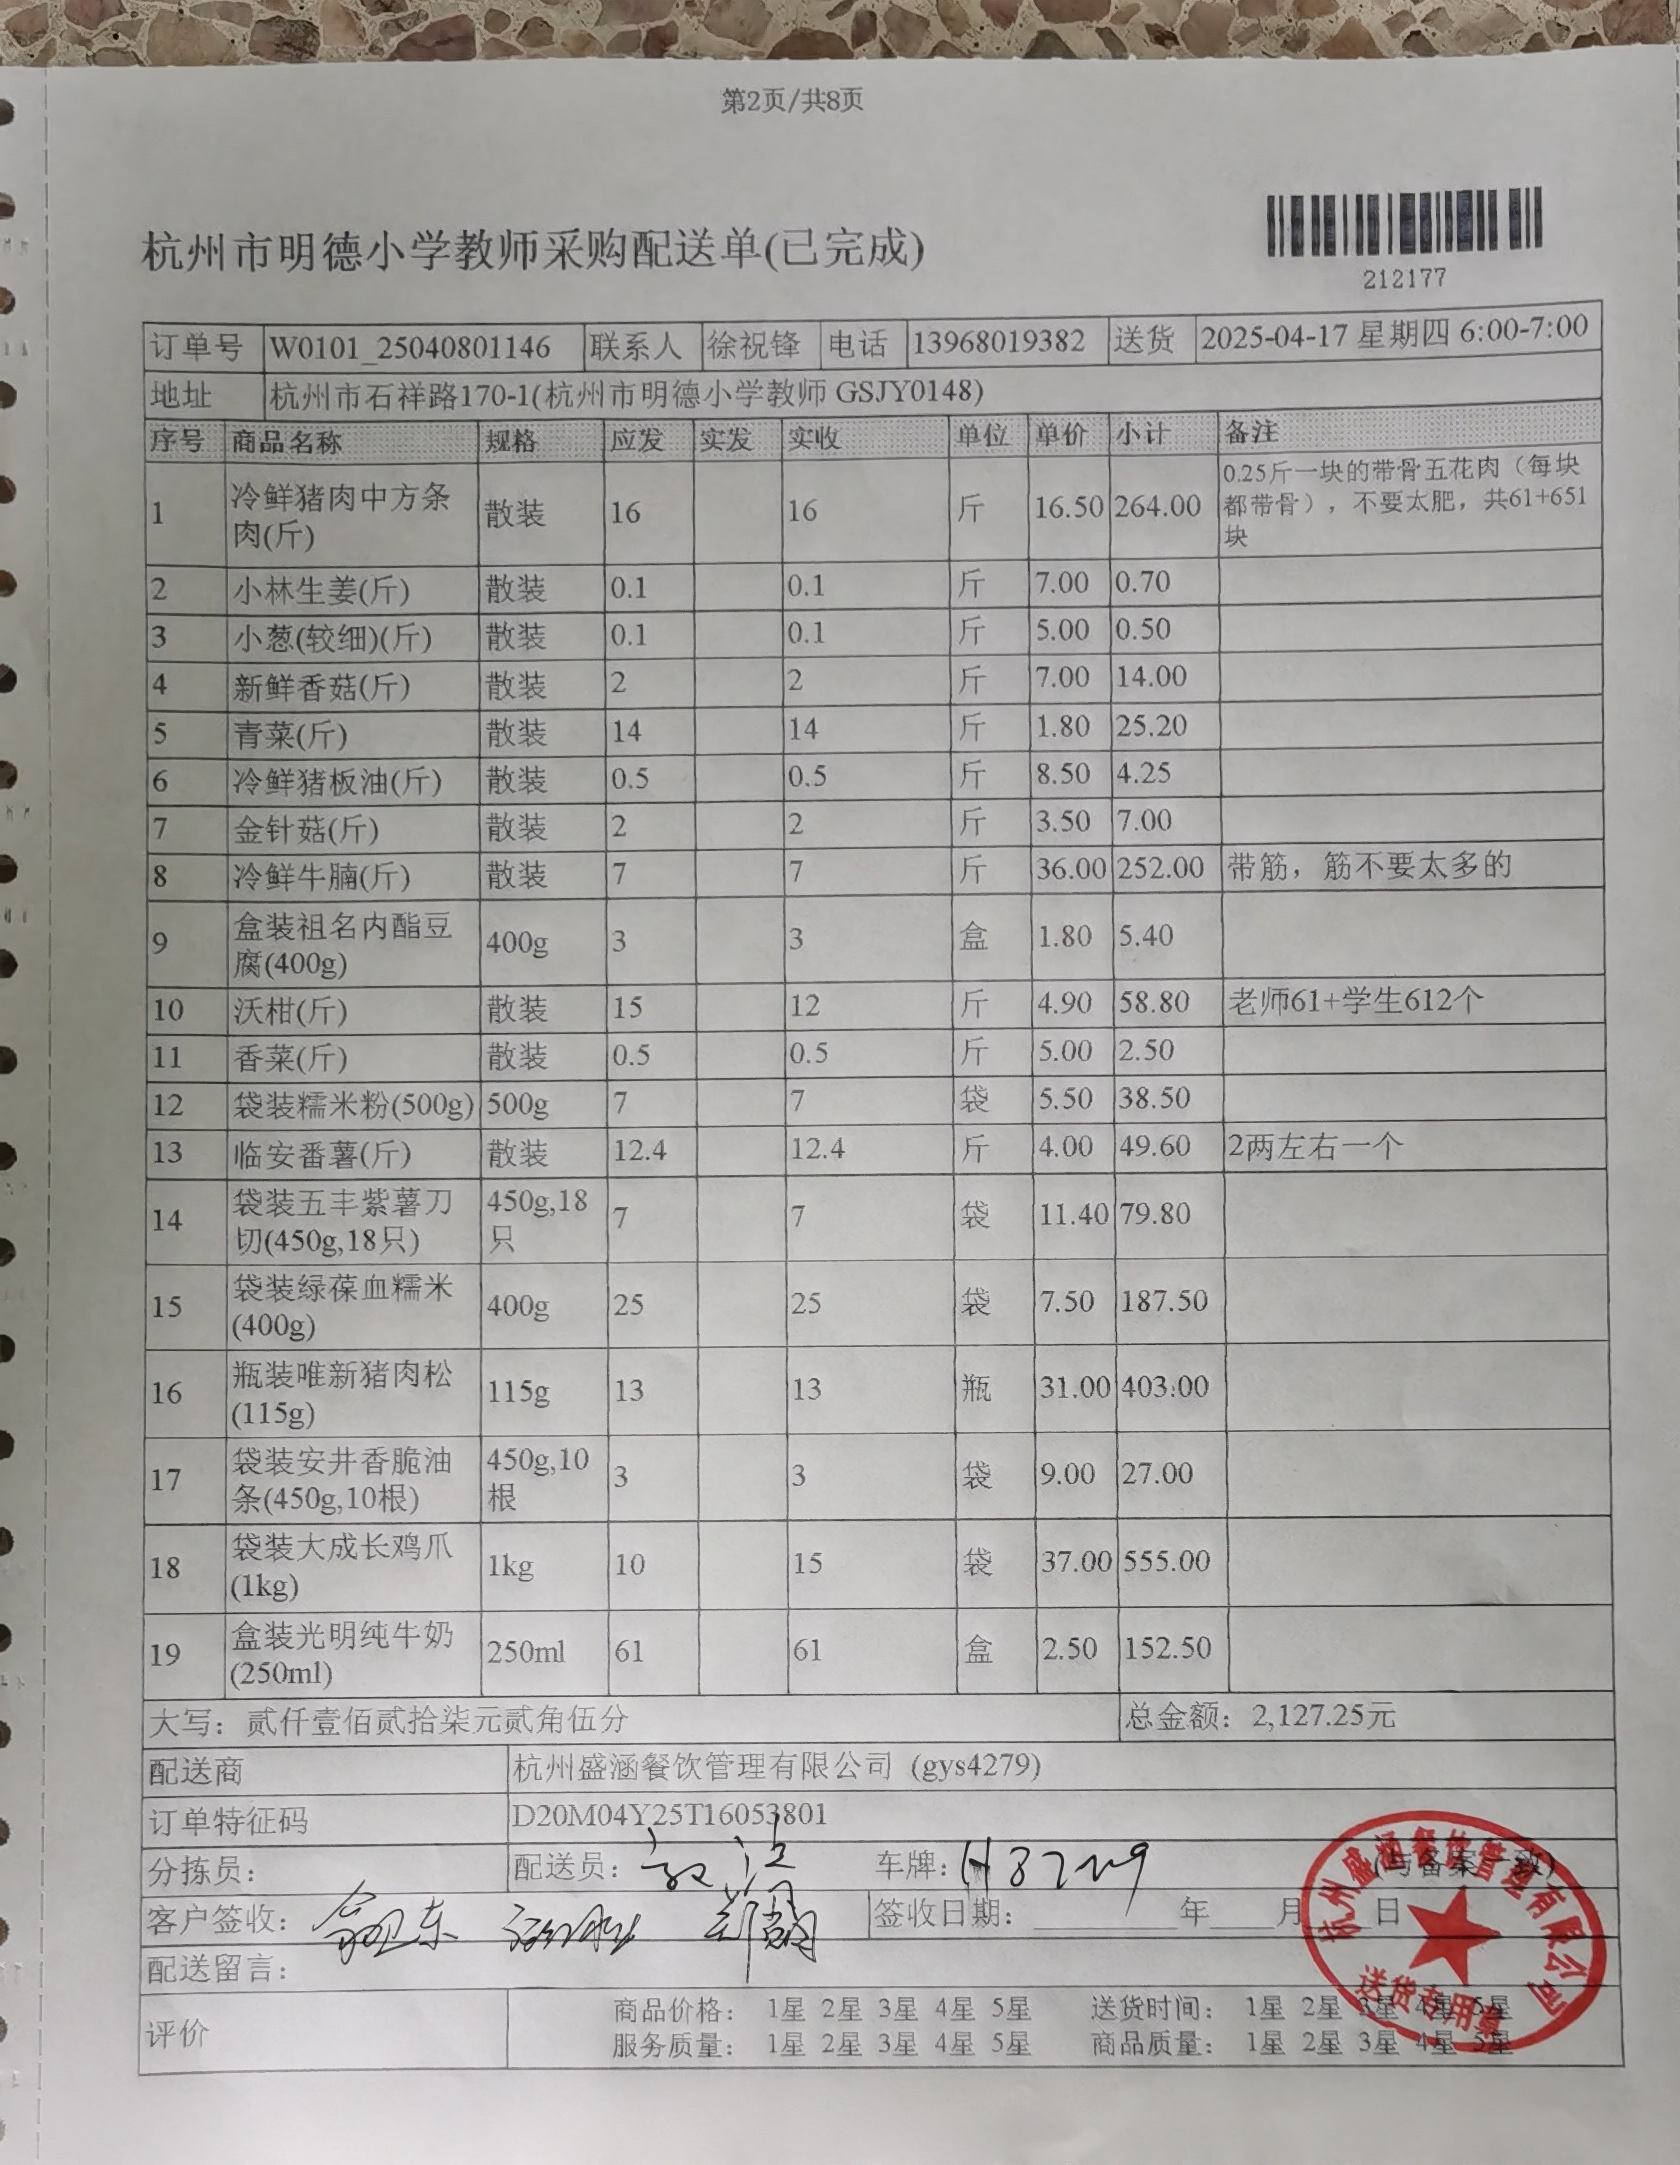 第2页/共8页
杭州市明德小学教师采购配送单(已完成)
212177
订单号 W0101_25040801146 联系人 徐祝锋 电话 13968019382 送货 2025-04-17 星期四 6:00-7:00
地址 杭州市石祥路170-1(杭州市明德小学教师 GSJY0148)
序号 商品名称 规格 应发 实发 实收 单位 单价 小计 备注
1 冷鲜猪肉中方条肉(斤) 散装 16 16 斤 16.50 264.00 0.25斤一块的带骨五花肉（每块都带骨），不要太肥，共61+651块
2 小林生姜(斤) 散装 0.1 0.1 斤 7.00 0.70
3 小葱(较细)(斤) 散装 0.1 0.1 斤 5.00 0.50
4 新鲜香菇(斤) 散装 2 2 斤 7.00 14.00
5 青菜(斤) 散装 14 14 斤 1.80 25.20
6 冷鲜猪板油(斤) 散装 0.5 0.5 斤 8.50 4.25
7 金针菇(斤) 散装 2 2 斤 3.50 7.00
8 冷鲜牛腩(斤) 散装 7 7 斤 36.00 252.00 带筋，筋不要太多的
9 盒装祖名内酯豆腐(400g) 400g 3 3 盒 1.80 5.40
10 沃柑(斤) 散装 15 12 斤 4.90 58.80 老师61+学生612个
11 香菜(斤) 散装 0.5 0.5 斤 5.00 2.50
12 袋装糯米粉(500g) 500g 7 7 袋 5.50 38.50
13 临安番薯(斤) 散装 12.4 12.4 斤 4.00 49.60 2两左右一个
14 袋装五丰紫薯刀切(450g,18只) 450g,18只 7 7 袋 11.40 79.80
15 袋装绿葆血糯米(400g) 400g 25 25 袋 7.50 187.50
16 瓶装唯新猪肉松(115g) 115g 13 13 瓶 31.00 403.00
17 袋装安井香脆油条(450g,10根) 450g,10根 3 3 袋 9.00 27.00
18 袋装大成长鸡爪(1kg) 1kg 10 15 袋 37.00 555.00
19 盒装光明纯牛奶(250ml) 250ml 61 61 盒 2.50 152.50
大写：贰仟壹佰贰拾柒元贰角伍分 总金额：2,127.25元
配送商 杭州盛涵餐饮管理有限公司 (gys4279)
订单特征码 D20M04Y25T16053801
分拣员： 配送员： 车牌： (与备案一致)
客户签收： 签收日期： 年 月 日
配送留言：
评价 商品价格： 1星 2星 3星 4星 5星 送货时间： 1星 2星 3星 4星 5星
服务质量： 1星 2星 3星 4星 5星 商品质量： 1星 2星 3星 4星 5星
杭州盛涵餐饮管理有限公司
送货专用章